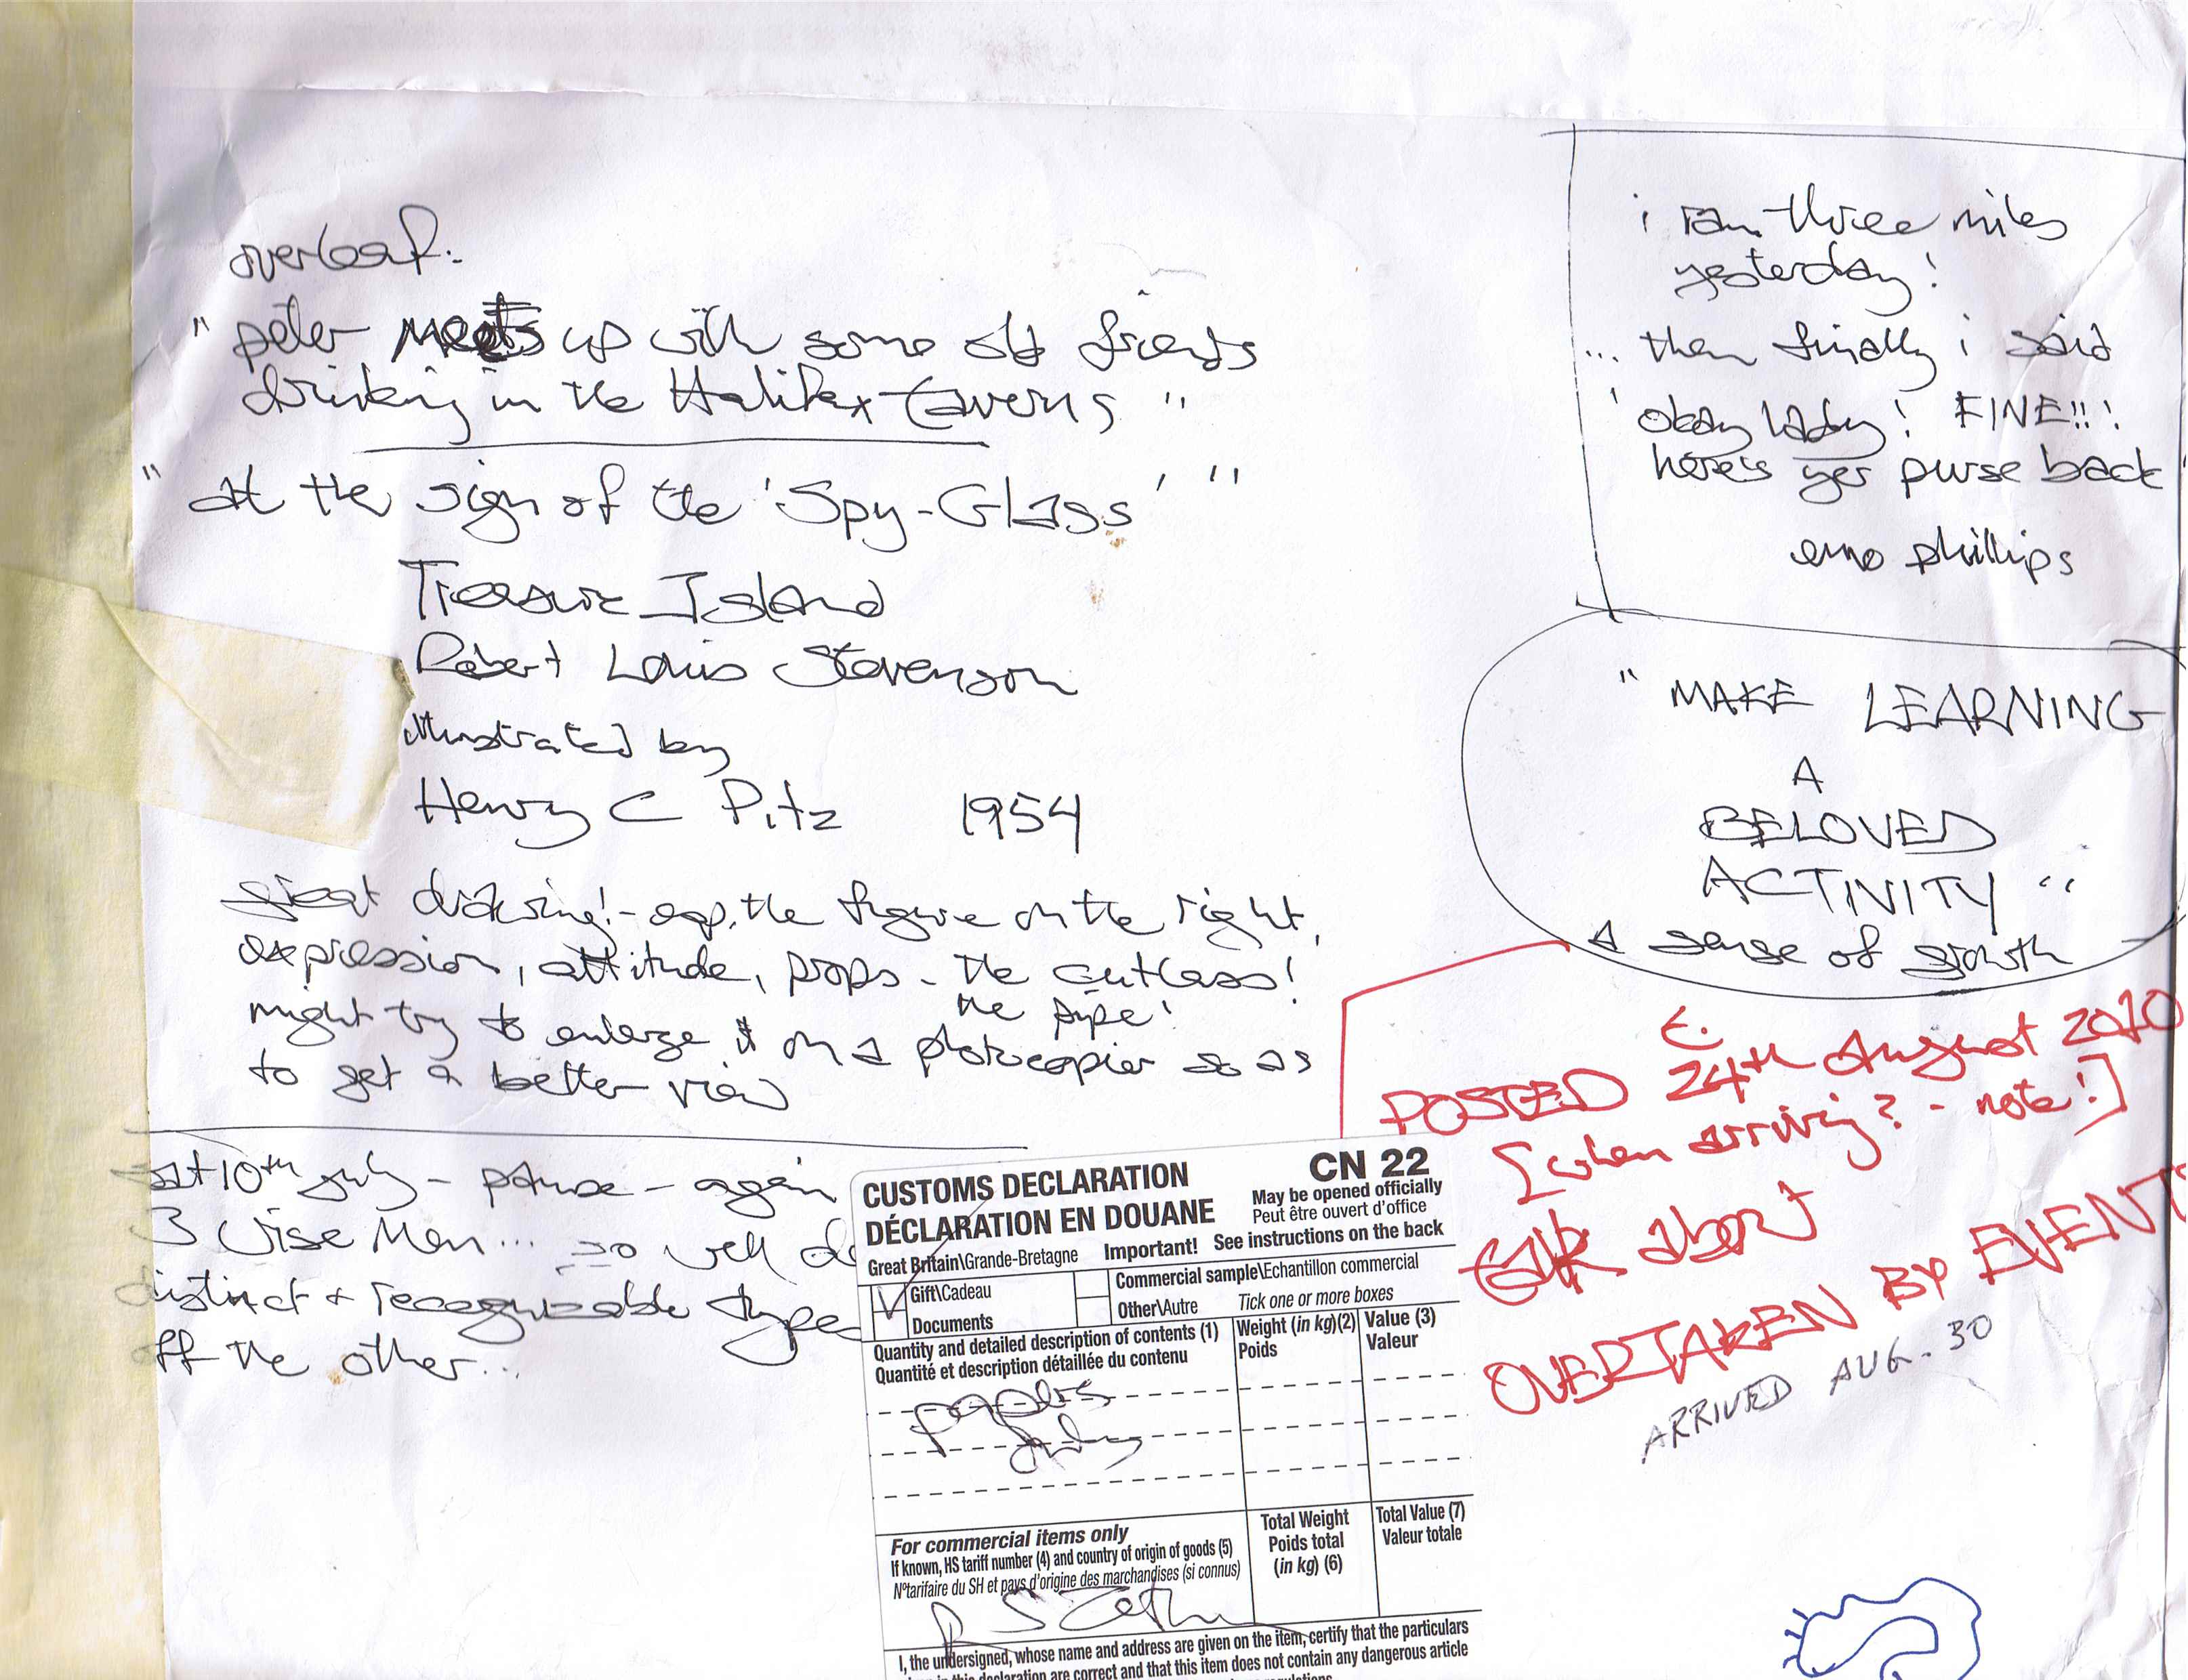 overleaf:
" peter meets up with some old friends
drinking in the Halifax taverns "
" at the sign of the 'Spy-Glass' "
Treasure Island
Robert Louis Stevenson
illustrated by
Henry C Pitz 1954
great drawing! - esp. the figure on the right,
expression, attitude, props - the cutlass!
the pipe!
might try to enlarge it on a photocopier so as
to get a better view
sat 10th july - pause - again
3 Wise Men... so well
distinct + recognizable type
off the other...
i ran three miles
yesterday!
... then finally i said
' okay lady! FINE!!!
here's yer purse back '
emo phillips
" MAKE LEARNING
A
BELOVED
ACTIVITY "
A sense of growth
POSTED 24th August 2010
[when arriving? - note!]
abort
OVERTAKEN BY EVENTS
ARRIVED AUG. 30
CUSTOMS DECLARATION CN 22
DÉCLARATION EN DOUANE May be opened officially
Peut être ouvert d'office
Great Britain\Grande-Bretagne Important! See instructions on the back
Gift\Cadeau Commercial sample\Echantillon commercial
Documents Other\Autre Tick one or more boxes
Quantity and detailed description of contents (1) Weight (in kg)(2) Value (3)
Quantité et description détaillée du contenu Poids Valeur
For commercial items only Total Weight Total Value (7)
If known, HS tariff number (4) and country of origin of goods (5) Poids total Valeur totale
N°tarifaire du SH et pays d'origine des marchandises (si connus) (in kg) (6)
I, the undersigned, whose name and address are given on the item, certify that the particulars
declaration are correct and that this item does not contain any dangerous article